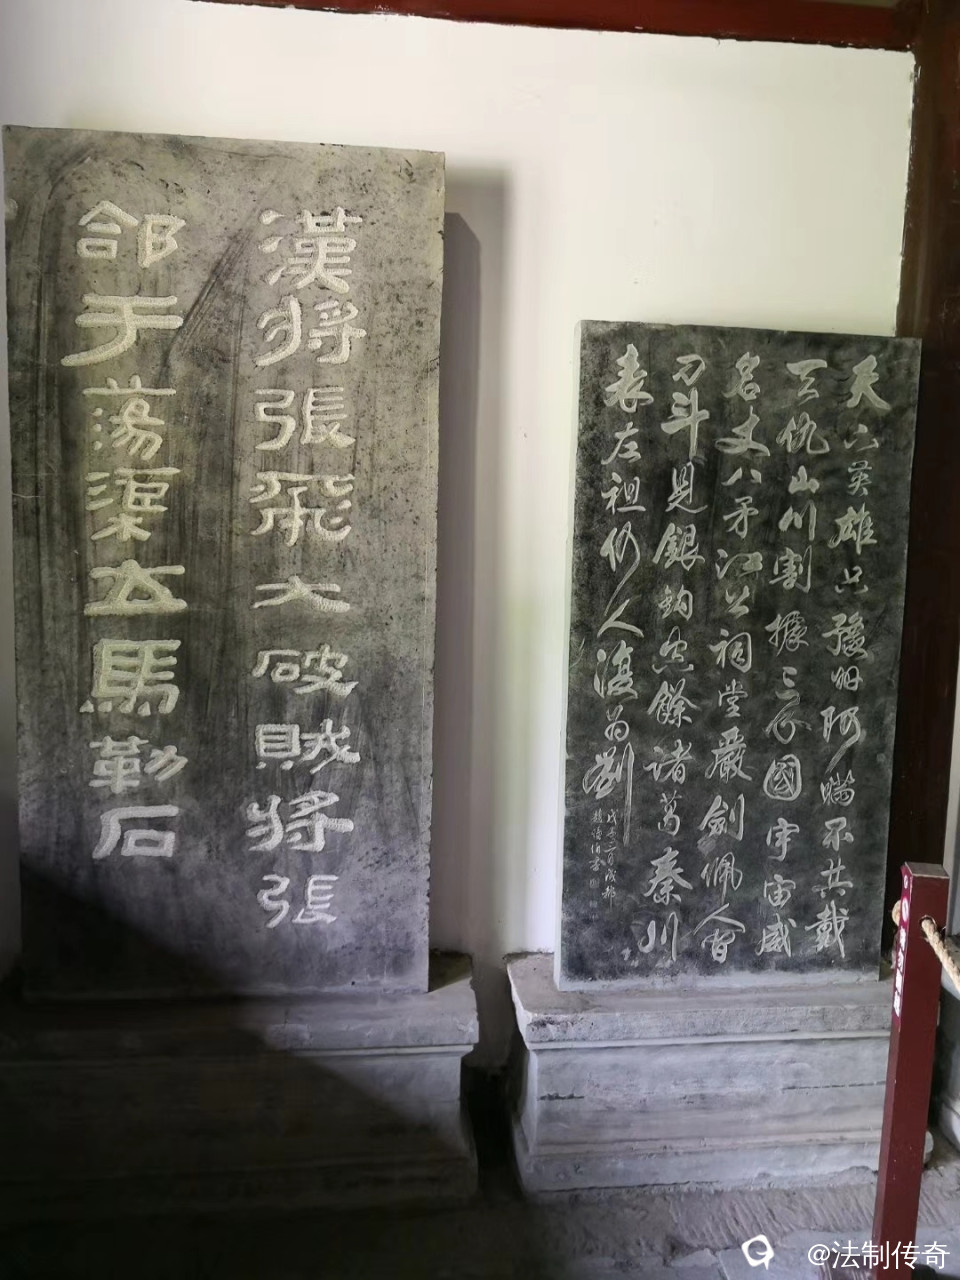 漢將張飛大破賊將張
郃于蕩渠立馬勒石
天下英雄只豫州阿瞞不共戴
天仇山川割據三分國宇宙威
名丈八矛江上祠堂嚴劍佩人間
刁斗見銀鉤空餘諸葛秦川
表左袒何人復為劉
@法制传奇